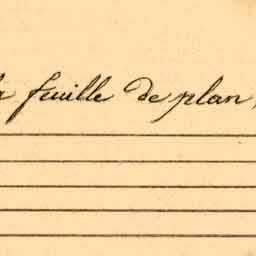 la feuille de plan,